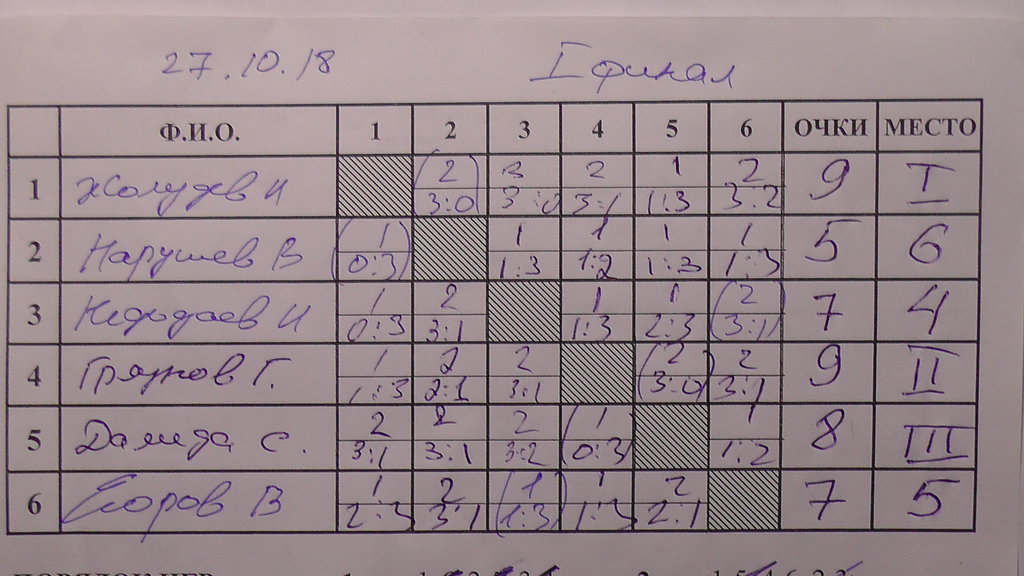 27.10.18 I финал
Ф.И.О. 1 2 3 4 5 6 ОЧКИ МЕСТО
1 Жолудев И 2 3 2 1 2 9 I
3:0 3:0 3:1 1:3 3:2
2 Нарушев В 1 1 1 1 1 5 6
0:3 1:3 1:2 1:3 1:3
3 И 1 2 1 1 2 7 4
0:3 3:1 1:3 2:3 3:1
4 Грязнов Г. 1 2 2 2 2 9 II
1:3 2:1 3:1 3:0 3:1
5 Далида С. 2 2 2 1 1 8 III
3:1 3:1 3:2 0:3 1:2
6 Егоров В 1 2 1 1 2 7 5
2:3 3:1 1:3 1:3 2:1